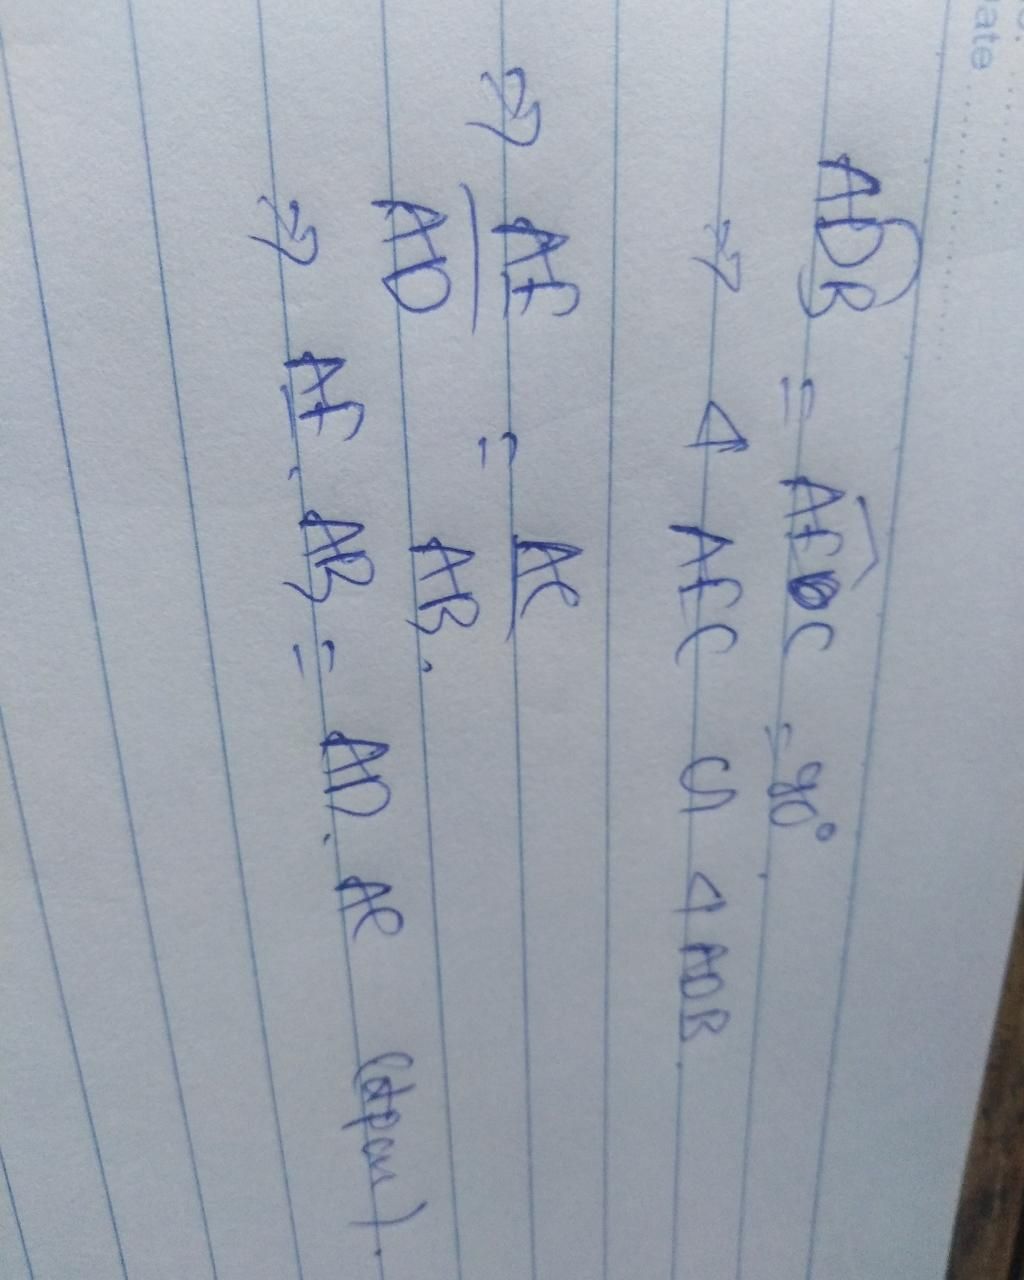 Date
ADB = AFC = 90°
=> Δ AFC ∽ Δ ADB
=> AF/AD = AC/AB.
=> AF. AB = AD. AC (đpcm).